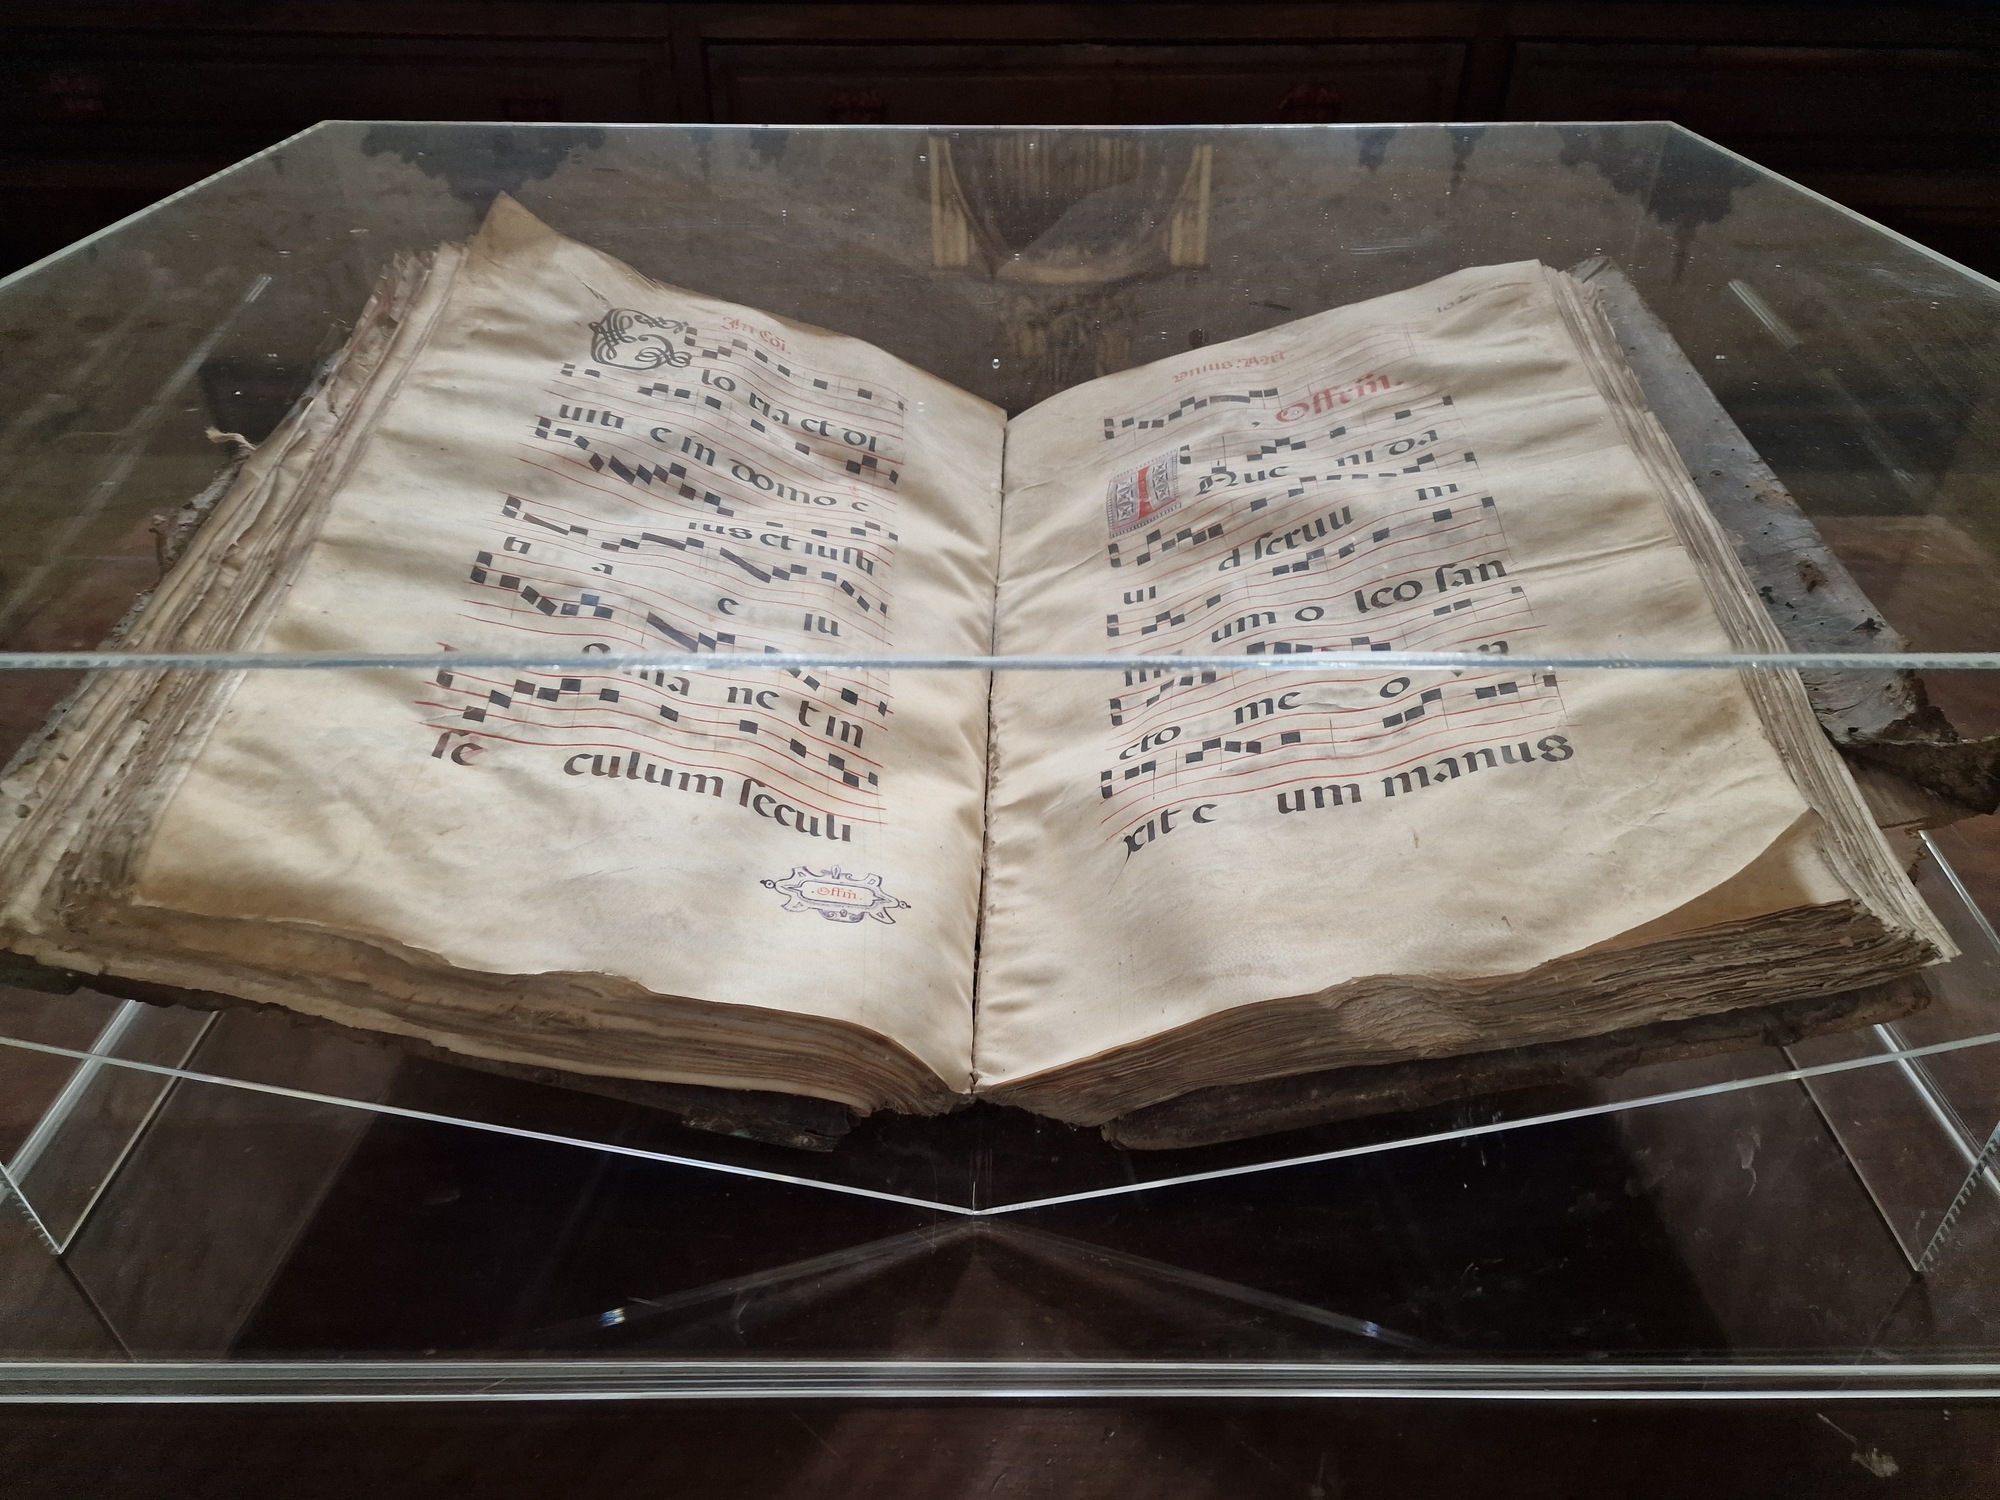 In Coi.
Glo ria et di
uiti e m domo e
ius et iusti
ti a e iu
ma ne t in
se culum seculi
Offm.
vnius. Mr.
Offm.
I Nue ni Da
ui d seruu m
um o leo san
cto me o
xit e um manus